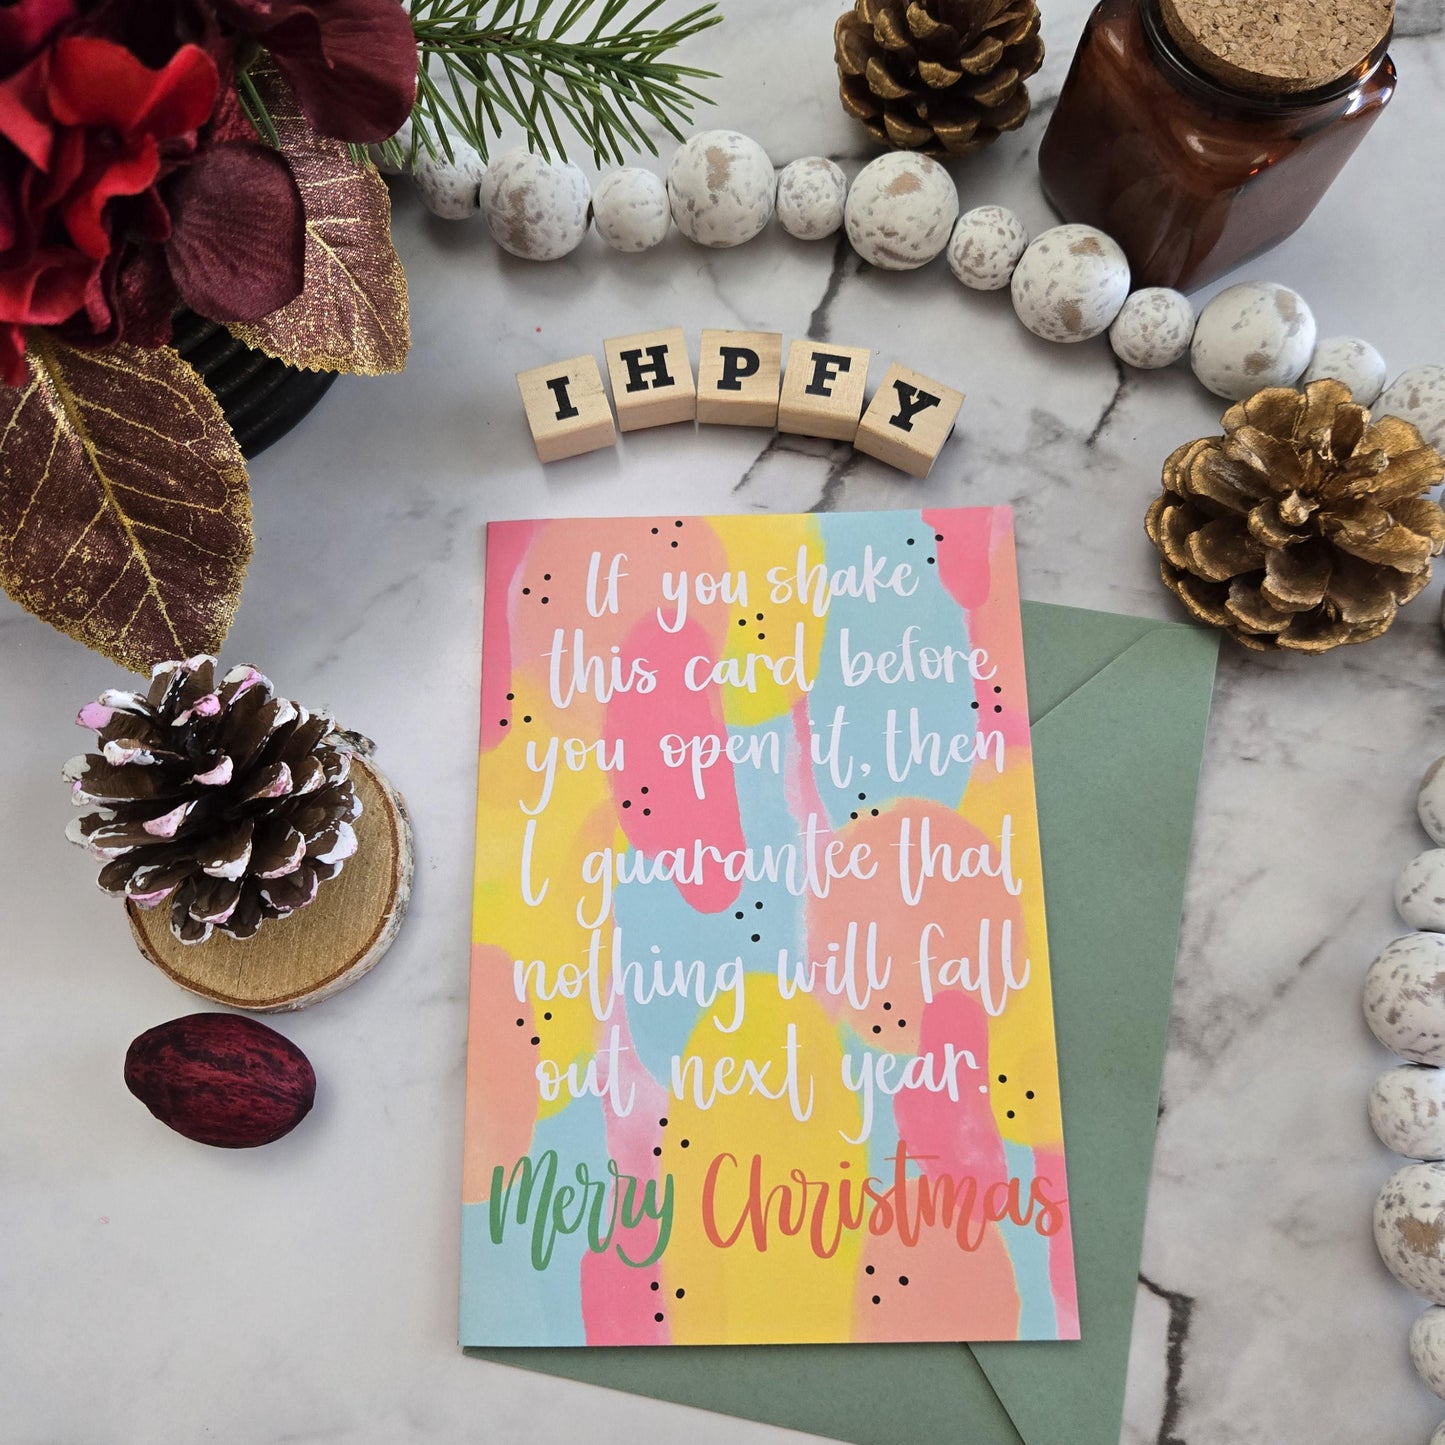 IHPFY
If you shake
this card before
you open it, then
I guarantee that
nothing will fall
out next year.
Merry Christmas